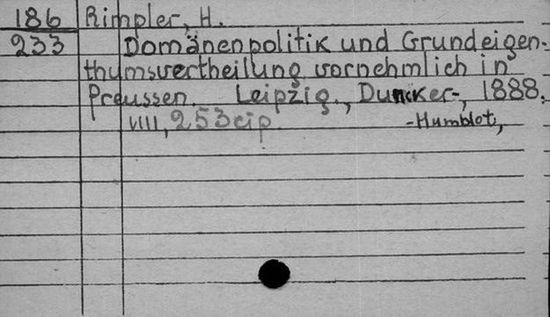 186 Rimpler, H.
233 Domänenpolitik und Grundeigen-
thumsvertheilung vornehmlich in
Preussen. Leipzig., Duncker-, 1888.
VIII, 253 cip. -Humblot,